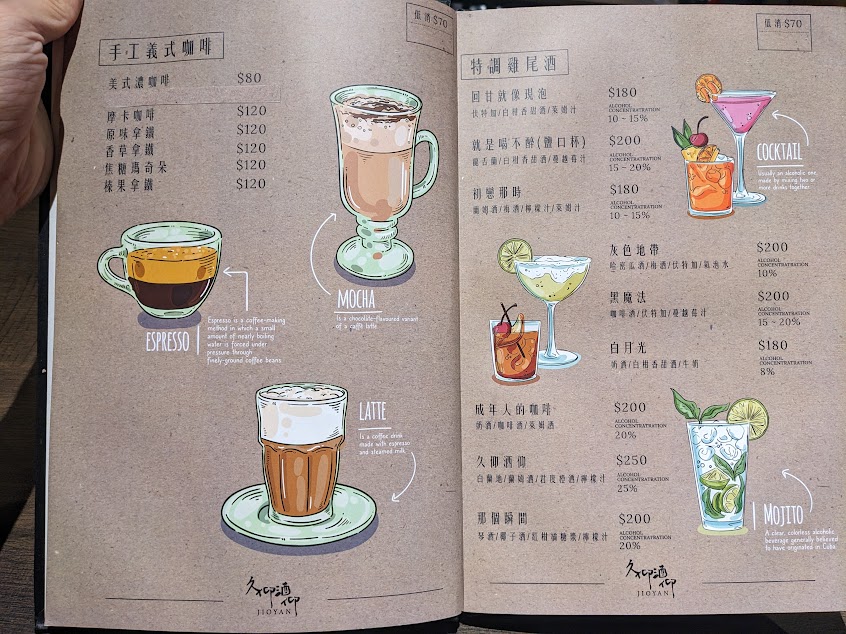 低消$70
手工義式咖啡
美式濃咖啡 $80
摩卡咖啡 $120
原味拿鐵 $120
香草拿鐵 $120
焦糖瑪奇朵 $120
榛果拿鐵 $120
MOCHA
Is a chocolate-flavoured variant
of a caffè latte.
ESPRESSO
Espresso is a coffee-making
method in which a small
amount of nearly boiling
water is forced under
pressure through
finely-ground coffee beans.
LATTE
Is a coffee drink
made with espresso
and steamed milk.
久仰酒仰
JIOYAN
低消$70
特調雞尾酒
回甘就像現泡 $180
伏特加/白柑香甜酒/萊姆汁
ALCOHOL
CONCENTRATRATION
10 ~ 15%
就是喝不醉(鹽口杯) $200
龍舌蘭/白柑香甜酒/蔓越莓汁
ALCOHOL
CONCENTRATRATION
15 ~ 20%
初戀那時 $180
蘭姆酒/梅酒/檸檬汁/萊姆汁
ALCOHOL
CONCENTRATRATION
10 ~ 15%
灰色地帶 $200
哈密瓜酒/梅酒/伏特加/氣泡水
ALCOHOL
CONCENTRATRATION
10%
黑魔法 $200
咖啡酒/伏特加/蔓越莓汁
ALCOHOL
CONCENTRATRATION
15 ~ 20%
白月光 $180
奶酒/白柑香甜酒/牛奶
ALCOHOL
CONCENTRATRATION
8%
成年人的咖啡 $200
奶酒/咖啡酒/萊姆酒
ALCOHOL
CONCENTRATRATION
20%
久仰酒仰 $250
白蘭地/蘭姆酒/君度橙酒/檸檬汁
ALCOHOL
CONCENTRATRATION
25%
那個瞬間 $200
琴酒/椰子酒/紅柑糖漿/檸檬汁
ALCOHOL
CONCENTRATRATION
20%
COCKTAIL
Usually an alcoholic one,
made by mixing two or
more drinks together.
MOJITO
A clear, colorless alcoholic
beverage generally believed
to have originated in Cuba
久仰酒仰
JIOYAN